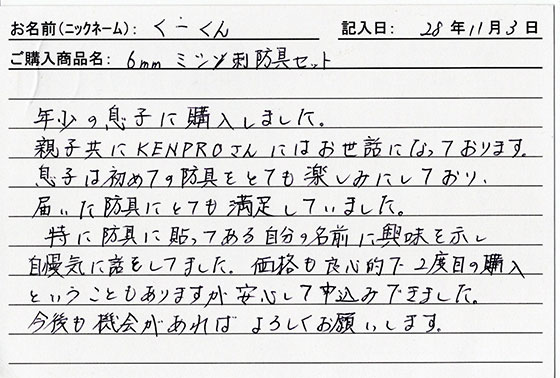 お名前(ニックネーム): くーくん 記入日: 28年11月3日
ご購入商品名: 6mm ミシン刺防具セット
年少の息子に購入しました。
親子共にKENPROさんにはお世話になっております。
息子は初めての防具をとても楽しみにしており、
届いた防具にとても満足していました。
特に防具に貼ってある自分の名前に興味を示し
自慢気に話をしてました。価格も良心的で2度目の購入
ということもありますが安心して申込みできました。
今後も機会があればよろしくお願いします。